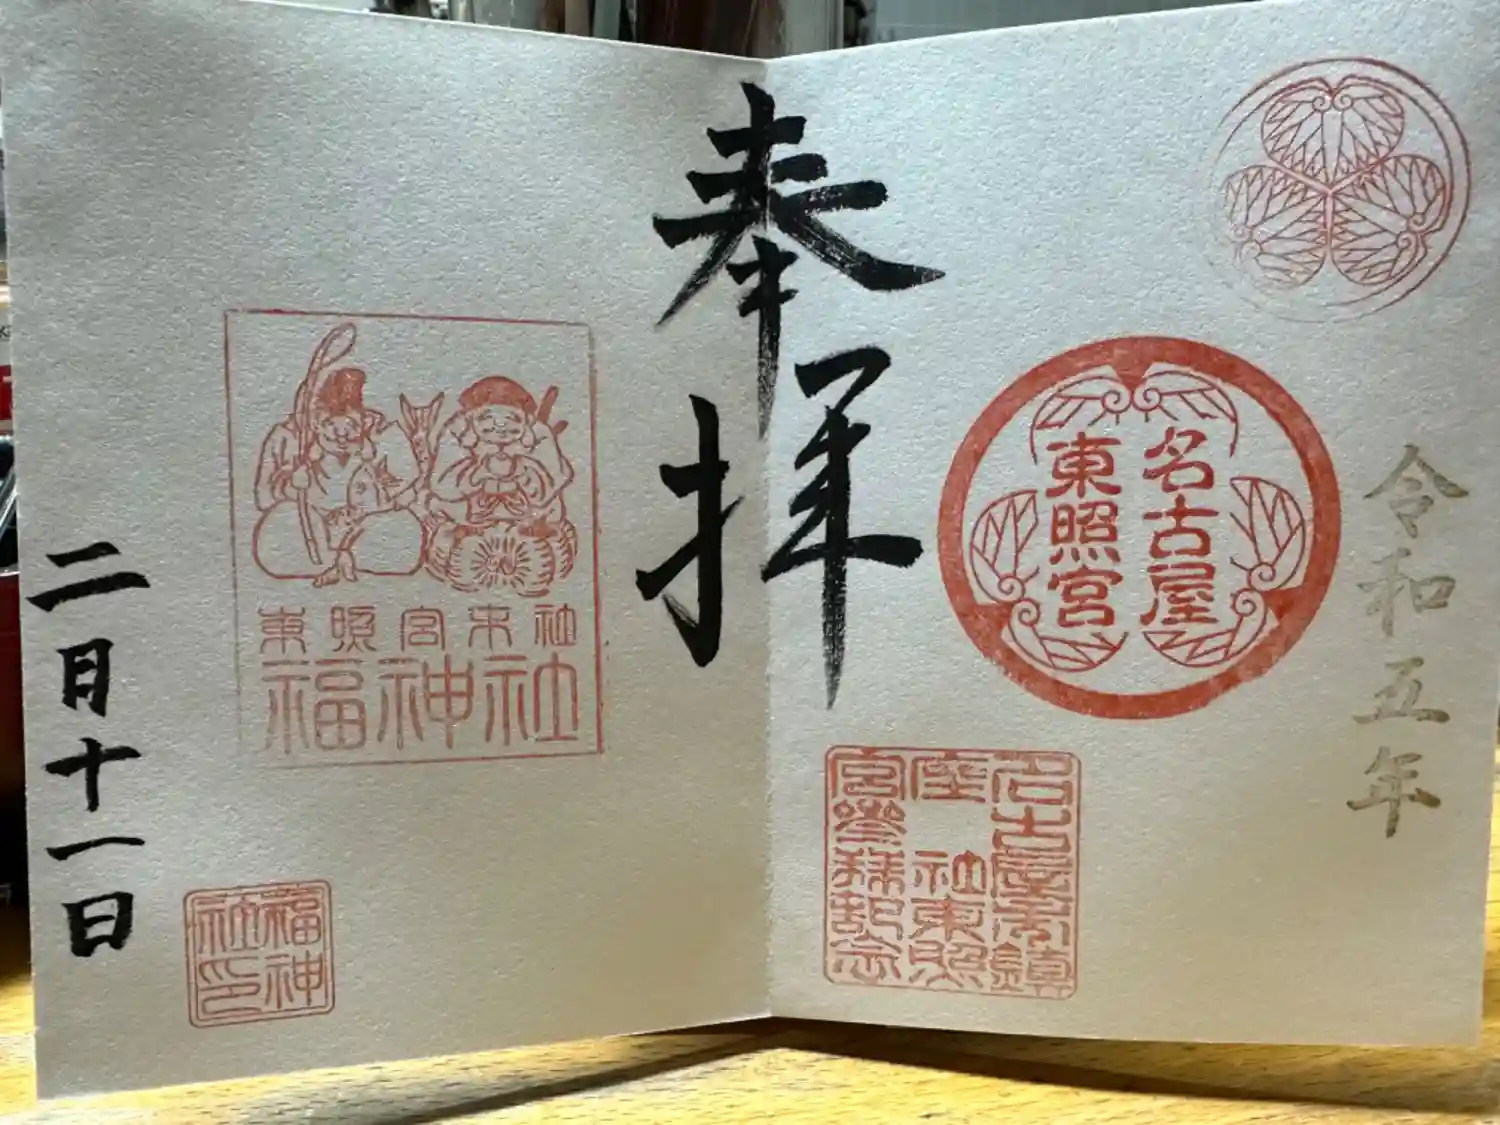 令和五年
名古屋
東照宮
名古屋市鎮
座 社東照
宮参拝記念
奉拝
東照宮末社
福神社
福神
社印
二月十一日